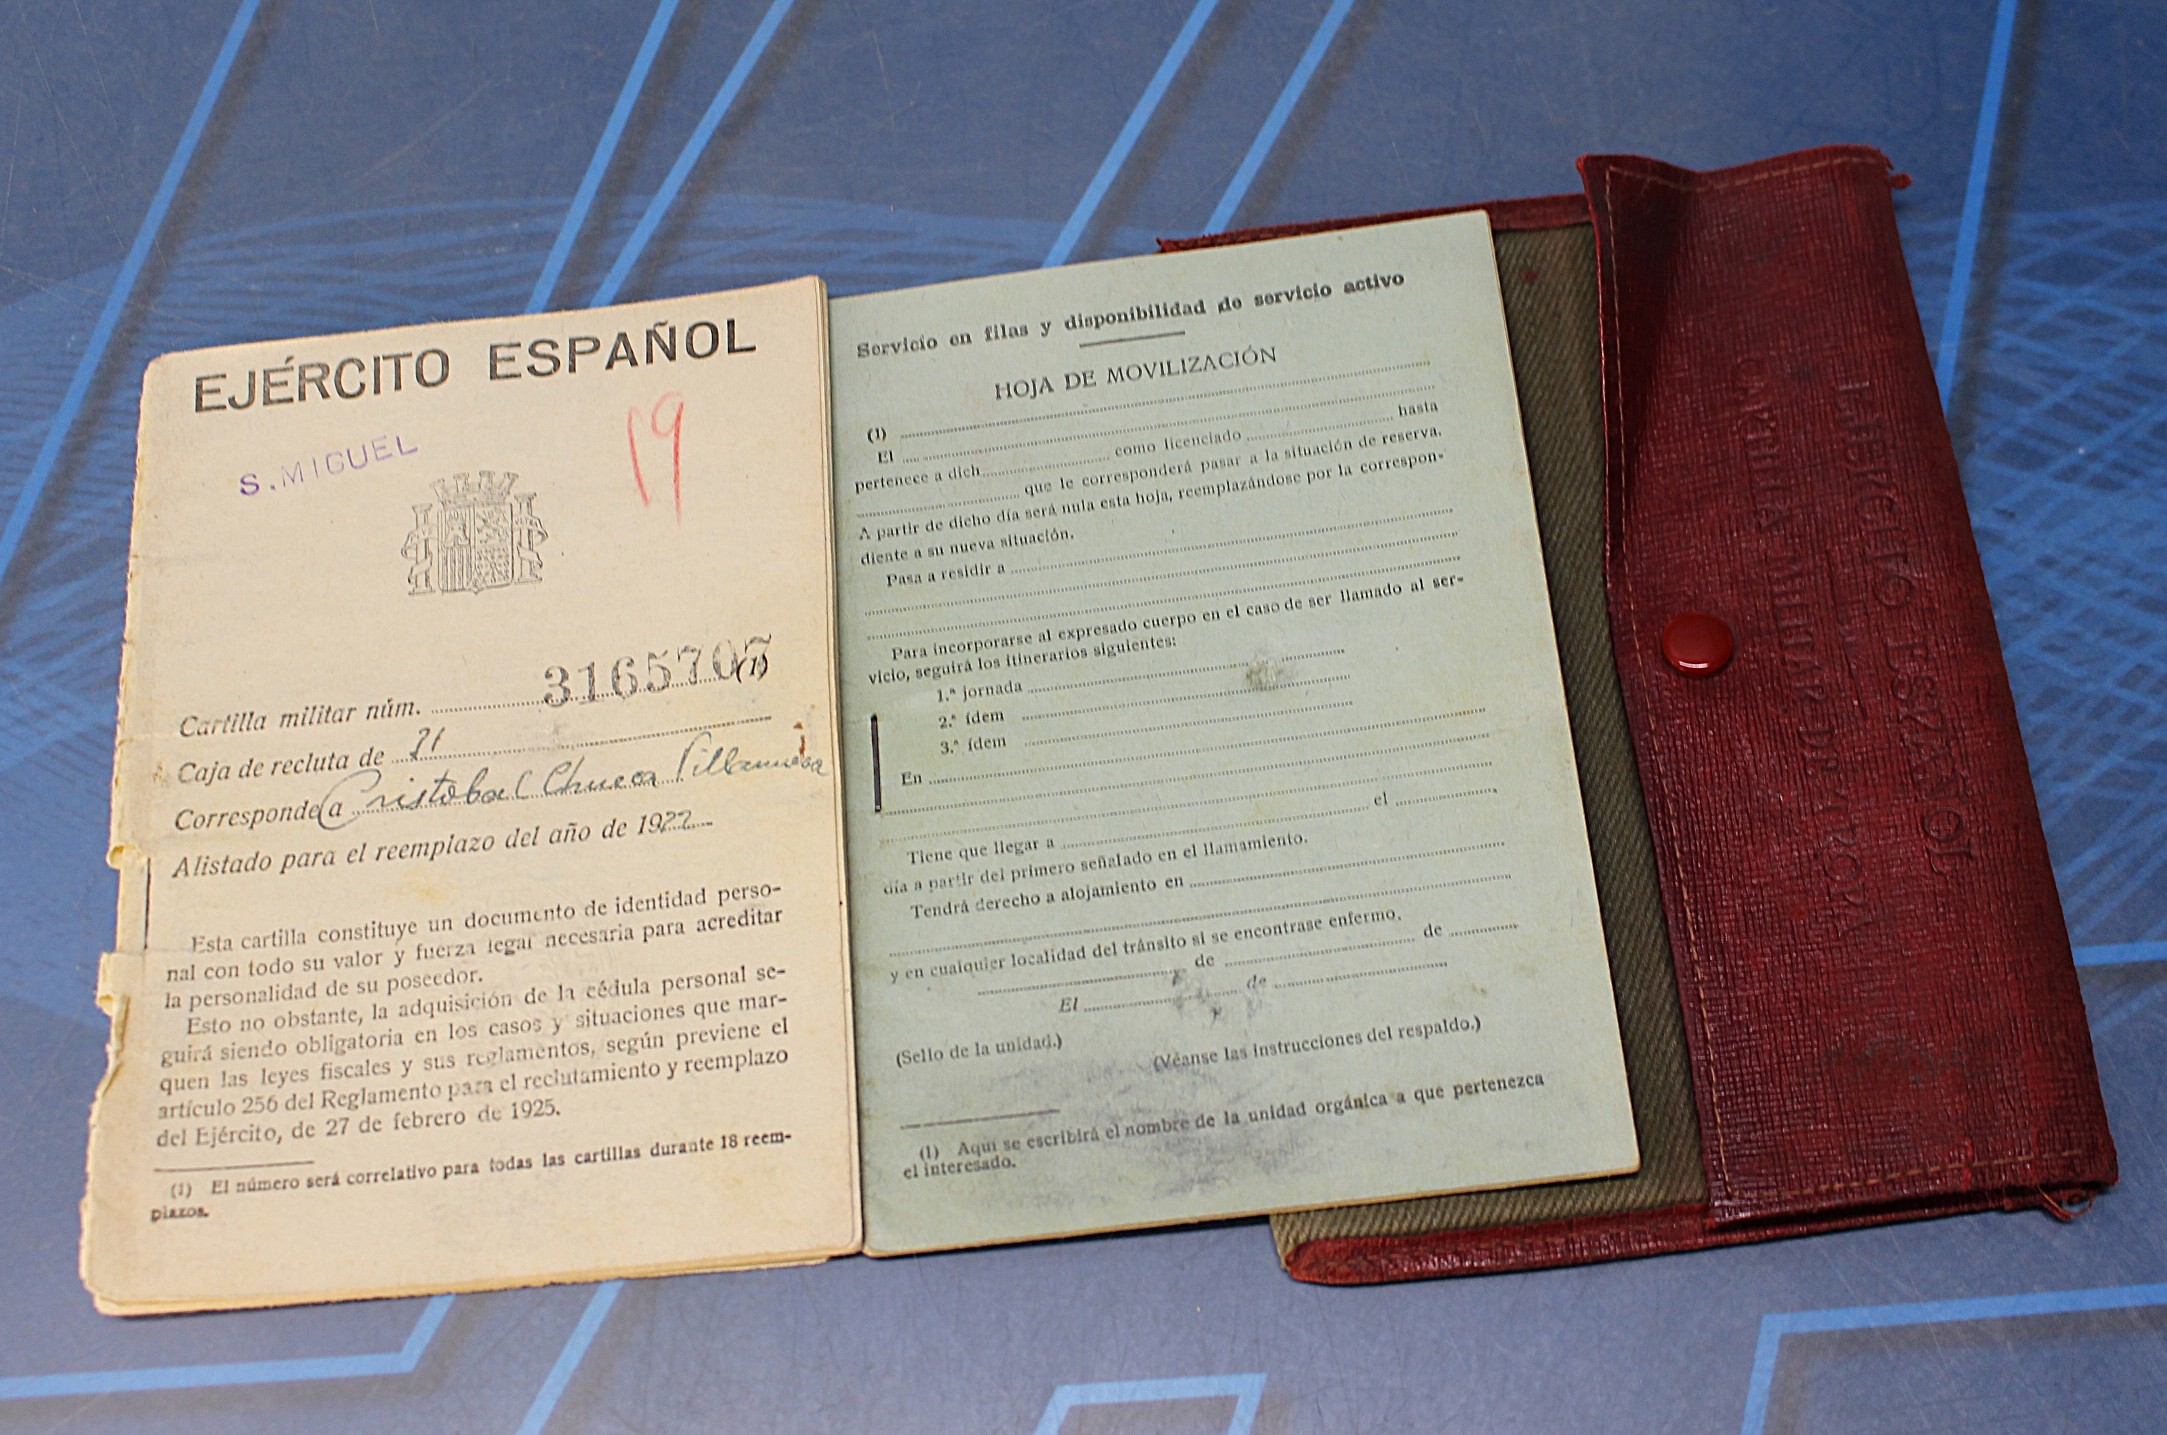 EJÉRCITO ESPAÑOL
S. MIGUEL
19
Cartilla militar núm. 3165707 (1)
Caja de recluta de 71
Corresponde a Cristobal Chueca Villanueva
Alistado para el reemplazo del año de 1922
Esta cartilla constituye un documento de identidad perso-
nal con todo su valor y fuerza legal necesaria para acreditar
la personalidad de su poseedor.
Esto no obstante, la adquisición de la cédula personal se-
guirá siendo obligatoria en los casos y situaciones que mar-
quen las leyes fiscales y sus reglamentos, según previene el
artículo 256 del Reglamento para el reclutamiento y reemplazo
del Ejército, de 27 de febrero de 1925.
(1) El número será correlativo para todas las cartillas durante 18 reem-
plazos.
Servicio en filas y disponibilidad de servicio activo
HOJA DE MOVILIZACIÓN
(1)
El
pertenece a dich como licenciado hasta
que le corresponderá pasar a la situación de reserva.
A partir de dicho día será nula esta hoja, reemplazándose por la correspon-
diente a su nueva situación.
Pasa a residir a
Para incorporarse al expresado cuerpo en el caso de ser llamado al ser-
vicio, seguirá los itinerarios siguientes:
1.ª jornada
2.ª ídem
3.ª ídem
En
Tiene que llegar a el
día a partir del primero señalado en el llamamiento.
Tendrá derecho a alojamiento en
y en cualquier localidad del tránsito si se encontrase enfermo.
de de
El de
(Sello de la unidad.)
(Véanse las instrucciones del respaldo.)
(1) Aquí se escribirá el nombre de la unidad orgánica a que pertenezca
el interesado.
EJERCITO ESPAÑOL
CARTILLA MILITAR DE TROPA